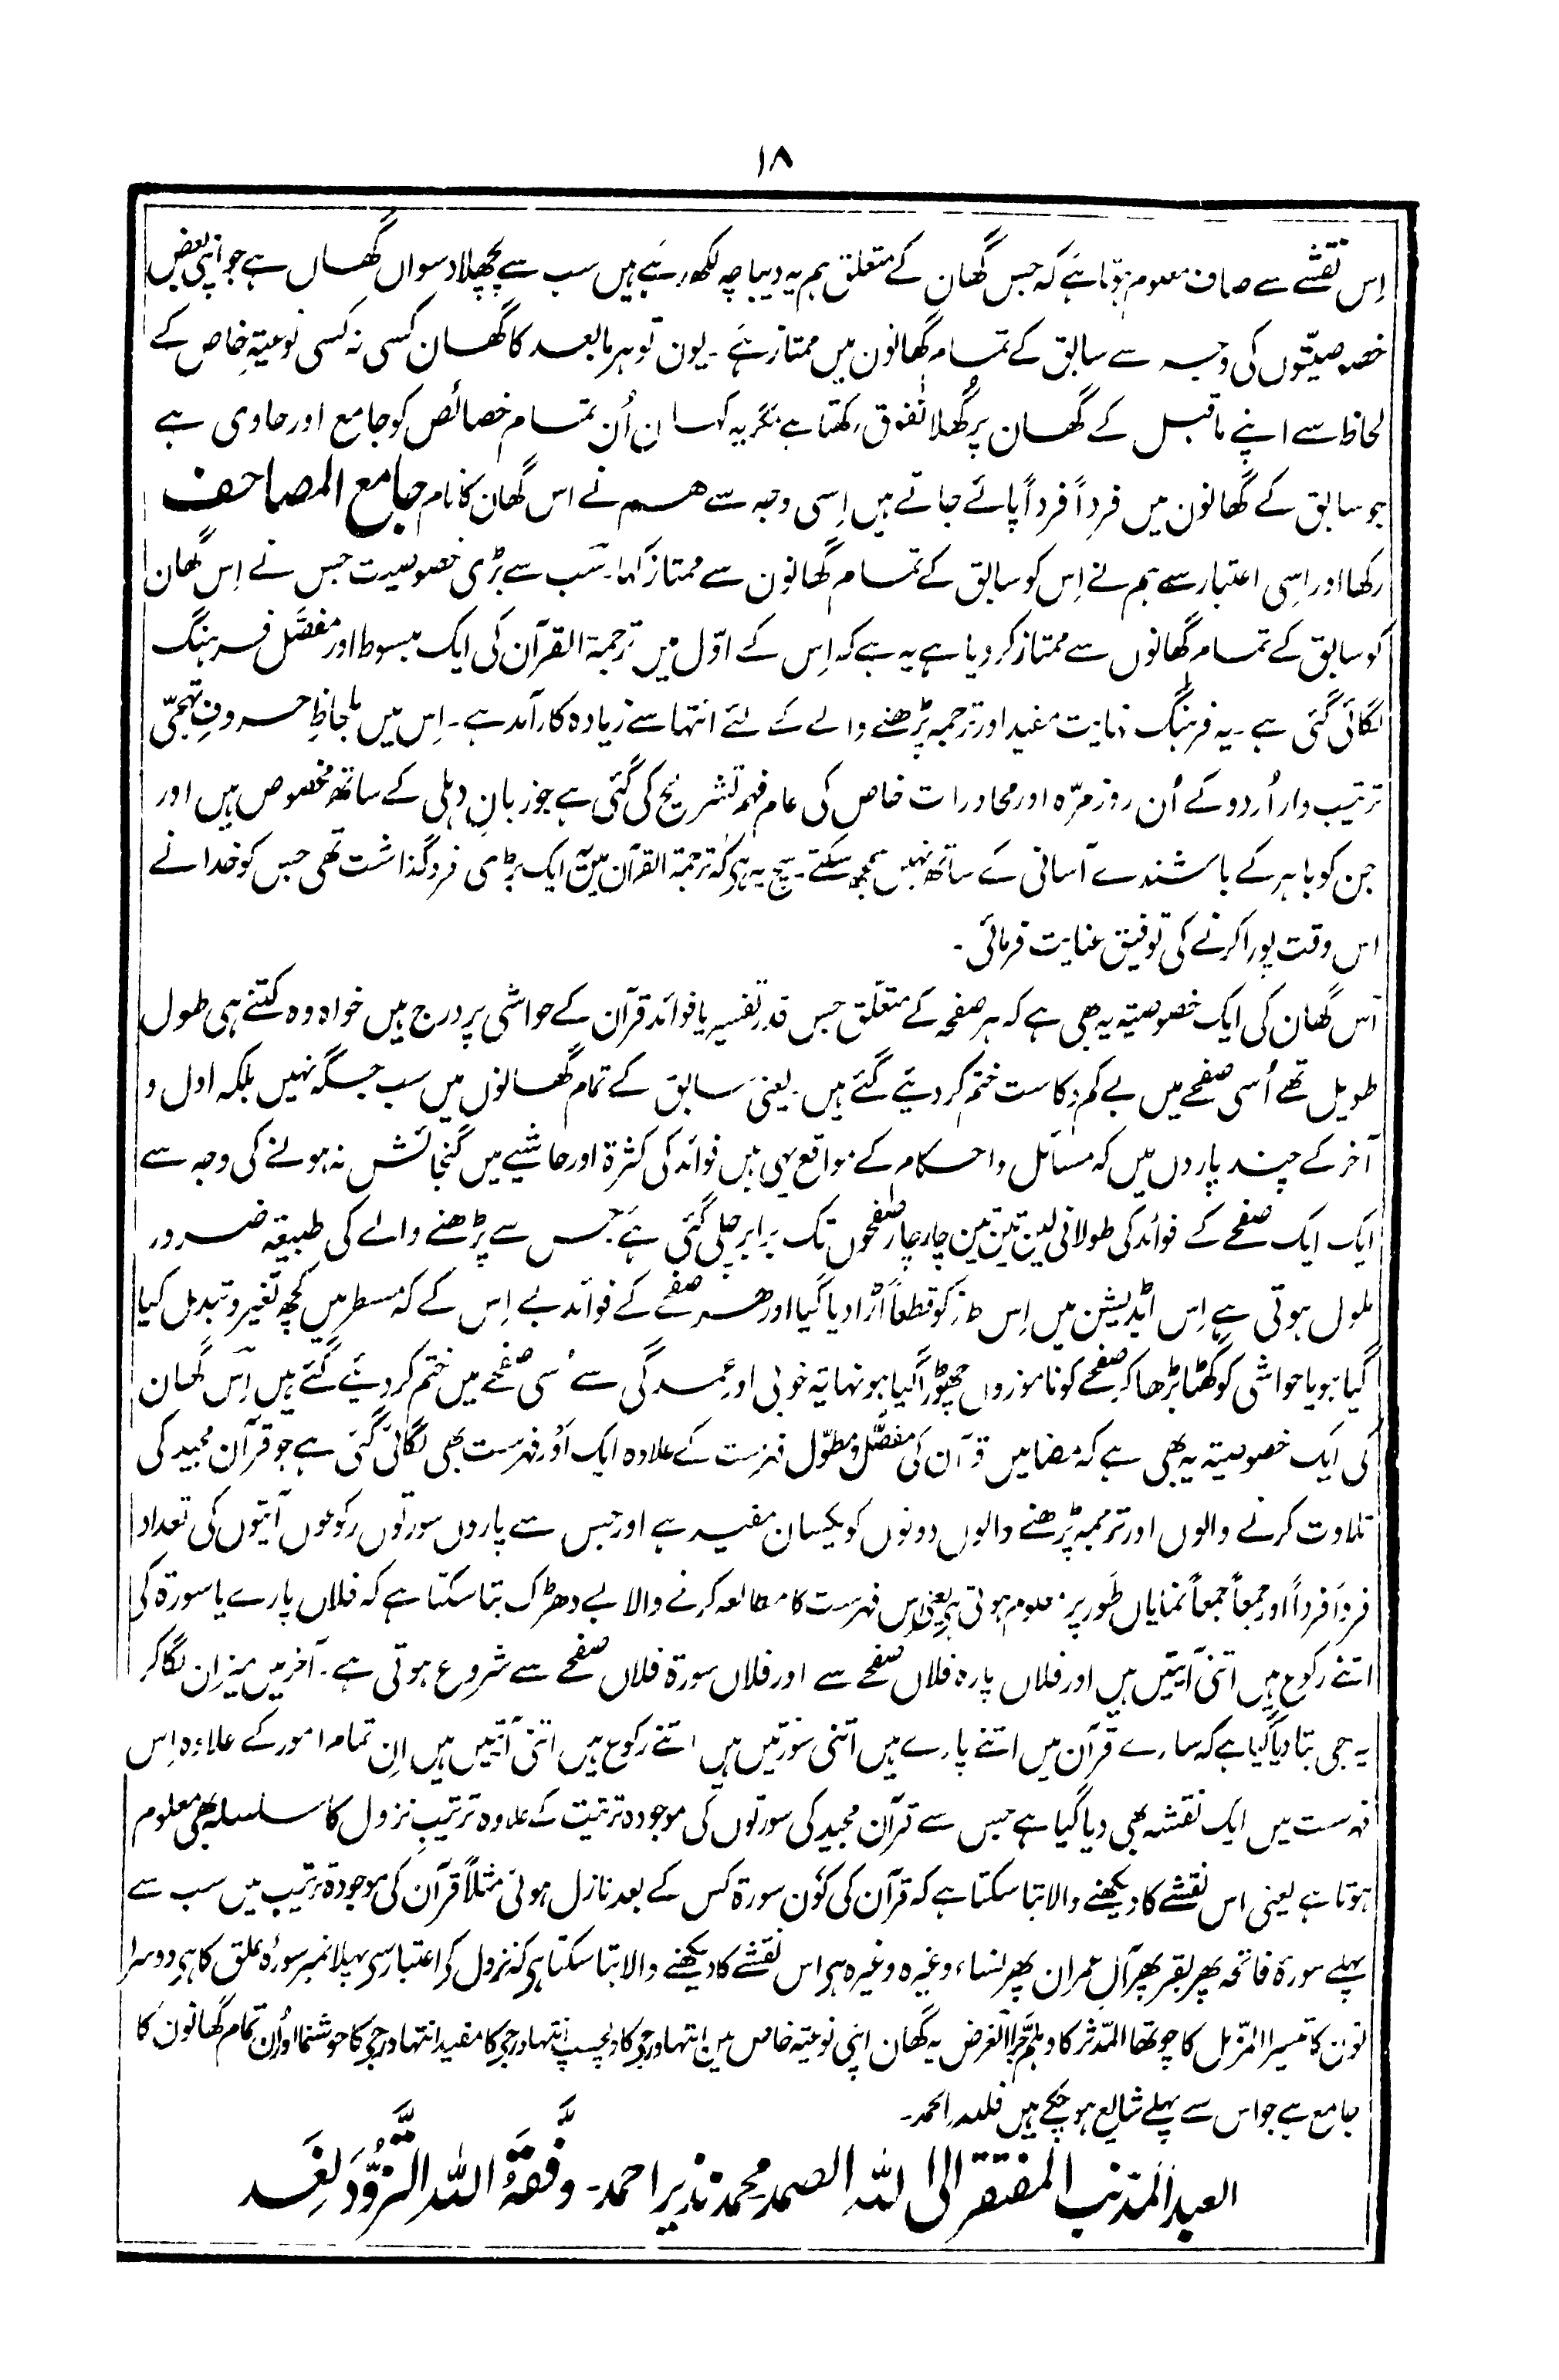 ۱۸
اِس نقشے سے صاف معلوم ہوتا ہے کہ جس گھان کے متعلق ہم یہ دیباچہ لکھ رہے ہیں سب سے پچھلا دسواں گھان ہے جو اپنی بعض
خصوصیتوں کی وجہ سے سابق کے تمام گھانون میں ممتاز ہے۔ یون تو ہر مابعد کا گھان کسی نہ کسی نوعیتہِ خاص کے
لحاظ سے اپنے ماقبل کے گھان پر کُھلا تفوق رکھتا ہے مگر یہ گھان اُن تمام خصائص کو جامع اور حاوی ہے
جو سابق کے گھانون میں فرداً فرداً پائے جاتے ہیں اِسی وجہ سے ہم نے اس گھان کا نام جامع المصاحف
رکھا اور اِسی اعتبار سے ہم نے اِس کو سابق کے تمام گھانون سے ممتاز کہا۔ سَب سے بڑی خصوصیت جس نے اِس گھان
کو سابق کے تمام گھانوں سے ممتاز کر دیا ہے یہ ہے کہ اِس کے اوّل میں ترجمۃ القرآن کی ایک مبسوط اور مفصَّل فرہنگ
لگائی گئی ہے۔ یہ فرہنگ نہایت مفید اور ترجمہ پڑھنے والے کے لئے انتہا سے زیادہ کارآمد ہے۔ اِس میں بلحاظِ حروفِ تہجّی
ترتیب وار اُردو کے اُن روزمرّہ اور محاورات خاص کی عام فہم تشریح کی گئی ہے جو زبانِ دہلی کے ساتھ مخصوص ہیں اور
جن کو باہر کے باشندے آسانی کے ساتھ نہیں سمجھ سکتے۔ سچ یہ ہی کہ ترجمۃ القرآن میں یہ ایک بڑی فروگذاشت تھی جس کو خدا نے
اس وقت پورا کرنے کی توفیق عنایت فرمائی۔
اس گھان کی ایک خصوصیتہ یہ بھی ہے کہ ہر صفحہ کے متعلّق جس قدر تفسیر یا فوائد قرآن کے حواشی پر درج ہیں خواہ وہ کتنے ہی طول
طویل تھے اُسی صفحے میں بے کم وکاست ختم کر دیئے گئے ہیں۔ یعنی سابق کے تمام گھانوں میں سب جگہ نہیں بلکہ اول و
آخر کے چند پاروں میں کہ مسائل و احکام کے مواقع یہی ہیں فوائد کی کثرۃ اور حاشیے میں گنجائش نہ ہونے کی وجہ سے
ایک ایک صفحے کے فوائد کی طولانی لین تین تین چار چار صفحوں تک برابر چلی گئی ہے جس سے پڑھنے والے کی طبیعۃ ضرور
ملول ہوتی ہے اِس اڈیشن میں اِس طرز کو قطعاً اُڑا دیا گیا اور ہر صفحے کے فوائد بے اِس کے کہ مسطر میں کچھ تغیر و تبدل کیا
گیا ہو یا حواشی کو گھٹا بڑھا کر صفحے کو ناموزوں چھوڑا گیا ہو نہایۃ خوبی اور عمدگی سے اُسی صفحے میں ختم کر دیئے گئے ہیں اِس گھان
کی ایک خصوصیتہ یہ بھی ہے کہ مضامین قرآن کی مفصَّل و مطوّل فہرست کے علاوہ ایک اَوْر فہرست بھی لگائی گئی ہے جو قرآن مجید کی
تلاوت کرنے والوں اور ترجمہ پڑھنے والوں دونوں کو یکسان مفید ہے اور جس سے پاروں سورتوں رکوعوں آیتوں کی تعداد
فرداً فرداً اور جمعاً جمعاً نمایاں طَور پر معلوم ہوتی ہی یعنی اِس فہرست کا مطالعہ کرنے والا بے دھڑک بتا سکتا ہے کہ فلاں پارے یا سورۃ کی
اتنے رکوع ہیں اتنی آیتیں ہیں اور فلاں پارہ فلاں صفحے سے اور فلاں سورۃ فلاں صفحے سے شروع ہوتی ہے۔ آخر میں میزان لگا کر
یہ بھی بتا دیا گیا ہے کہ سارے قرآن میں اتنے پارے ہیں اتنی سورتیں ہیں اتنے رکوع ہیں اتنی آیتیں ہیں اِن تمام امور کے علاوہ اِس
فہرست میں ایک نقشہ بھی دیا گیا ہے جس سے قرآن مجید کی سورتوں کی موجودہ ترتیب کے علاوہ ترتیبِ نزول کا سلسلہ بھی معلوم
ہوتا ہے یعنی اس نقشے کا دیکھنے والا بتا سکتا ہے کہ قرآن کی کَون سورۃ کس کے بعد نازل ہوئی مثلاً قرآن کی موجودہ ترتیب میں سب سے
پہلے سورۃ فاتحہ پھر بقر پھر آلِ عمران پھر نساء وغیرہ وغیرہ ہی اس نقشے کا دیکھنے والا بتا سکتا ہی کہ نزول کے اعتبار سے پہلا نمبر سورۂ علق کا ہی دوسرا
نون کا تیسرا المزّمل کا چوتھا المدّثر کا و ہلم جرّا الغرض یہ گھان اپنی نوعیتہ خاص میں انتہا درجے کا دلچسپ انتہا درجے کا مفید انتہا درجے کا خوشنما اور اُن تمام گھانون کا
جامع ہے جو اس سے پہلے شایع ہو چکے ہیں فللہ الحمد۔
العبد المذنب المفتقر الی اللّٰہ الصمد محمد نذیر احمد۔ وَفَّقَہُ اللّٰہُ التَّزَوُّدَ لِغَدٍ